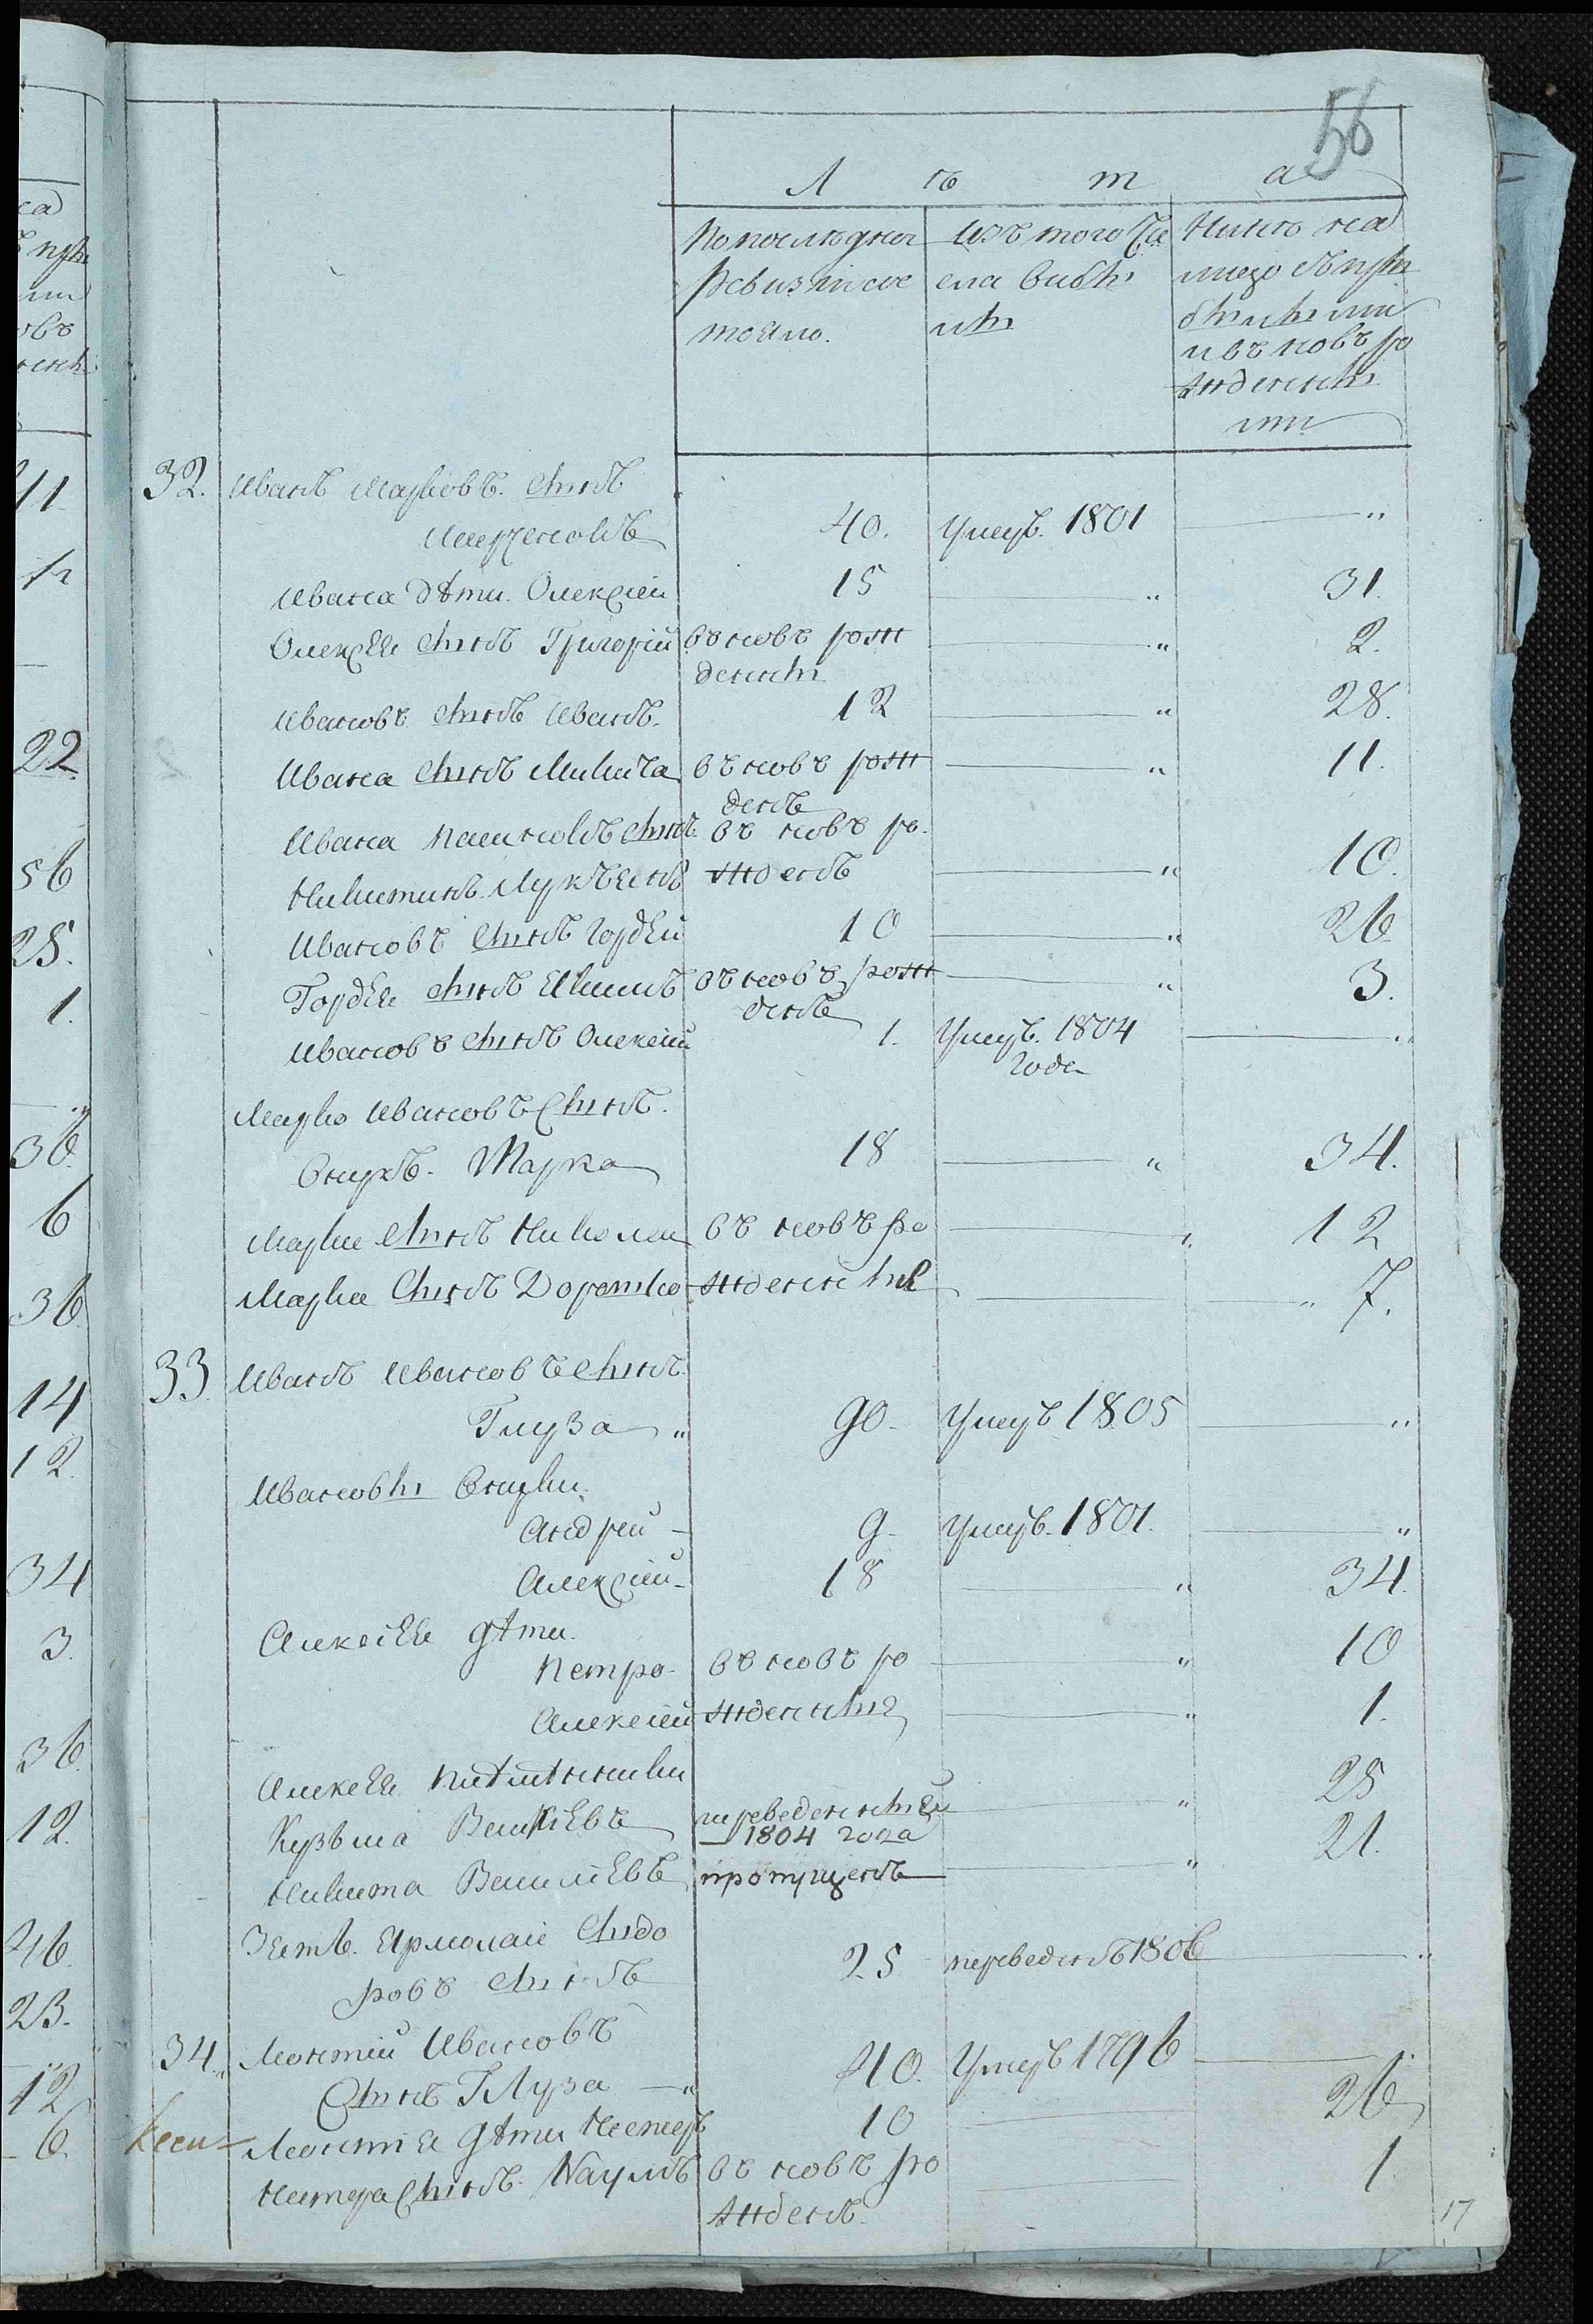 56
Л ѣ т а
По последней Изъ того чи Нине на
ревизiи сос сла выбы лицо съ при
тояло. лы былыми
и въ новъ ро
жденны
ми
32. Иванъ Марковъ. сынъ
40. Умеръ. 1801 "
Ивана дѣти. Олексiей 15 " 31.
Олексея сынъ Григорiй въ новъ рож " 2.
денны
Ивановъ сынъ Иванъ. 12 " 28.
Ивана сынъ Микита въ новъ рож " 11.
денъ
Ивана сынъ въ новъ ро
жденъ " 10.
Ивановъ сынъ Гордей 10 " 26
Гордея сынъ въ новъ рож " 3.
денъ
Ивановъ сынъ Олексiй 1. Умеръ. 1804 "
года
Марко Ивановъ сынъ.
Внукъ. Марка 18 " 34.
Марка сынъ Николай въ новъ ро " 12
Марка сынъ жденные " 7.
33 Иванъ Ивановъ сынъ
Глуза " 90. Умеръ 1805 "
Ивановы Внуки.
Андрей - 9. Умеръ. 1801. "
Алексiей - 18 " 34.
Алексiея дѣти.
Петро. въ новъ ро " 10
Алексiей жденные " 1.
Алексея племѣнники
Кузьма Васильевъ переведенный " 25
1804 года
Никита Василiевъ пропущенъ " 21.
Зять. Ярмолай Сидо
ровъ сынъ 25 переведенъ 1806 "
34. Леонтiй Ивановъ
Сынъ Глуза " 40. Умеръ 1796 "
Леонтiя дѣти Нестеръ 10 26
Нестера сынъ. Наумъ въ новъ ро 1
жденъ.
17